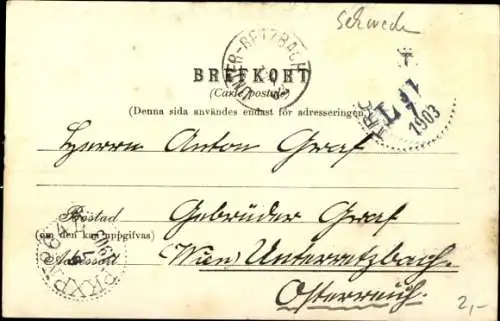 Schweden
UNTER-RETZBACH
BREFKORT
(Carte postale)
(Denna sida användes endast för adresseringen)
1903
Herrn Anton Graf
Bostad
(om den kan uppgifvas)
Gebrüder Graf
Adressort
Wien Unterretzbach.
Österreich.
PKXP No 64
2,-